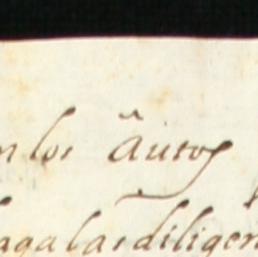 n los Autos
aga las diligen